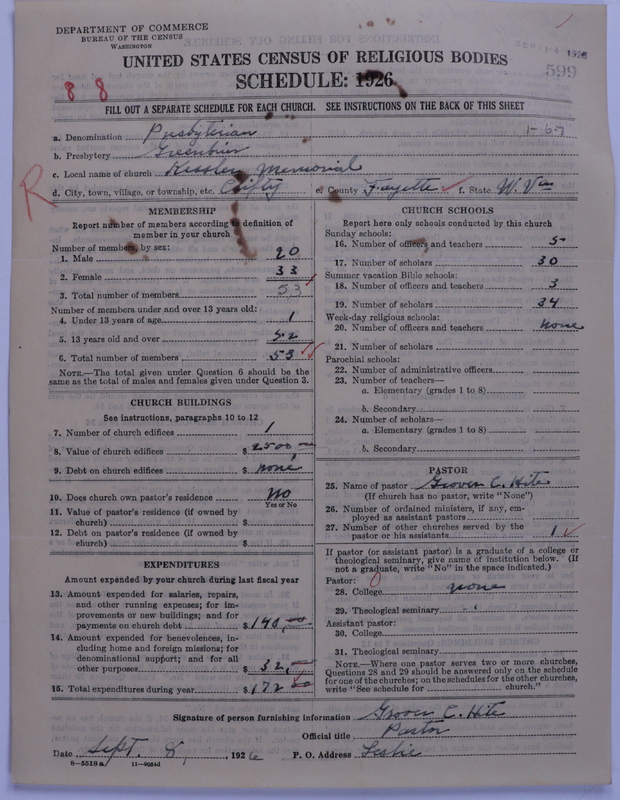 DEPARTMENT OF COMMERCE
BUREAU OF THE CENSUS
WASHINGTON
1926
599
UNITED STATES CENSUS OF RELIGIOUS BODIES
SCHEDULE: 1926
8 8
FILL OUT A SEPARATE SCHEDULE FOR EACH CHURCH. SEE INSTRUCTIONS ON THE BACK OF THIS SHEET
a. Denomination Presbyterian 1-67
b. Presbytery Greenbrier
c. Local name of church Kessler Memorial
R
d. City, town, village, or township, etc. Clifty e. County Fayette f. State W. Va
MEMBERSHIP
Report number of members according to definition of
member in your church
Number of members, by sex:
1. Male 20
2. Female 33
3. Total number of members 53
Number of members under and over 13 years old:
4. Under 13 years of age 1
5. 13 years old and over 52
6. Total number of members 53
NOTE.—The total given under Question 6 should be
same as the total of males and females given under Question 3.
CHURCH BUILDINGS
See instructions, paragraphs 10 to 12
7. Number of church edifices 1
8. Value of church edifices $ 2500
9. Debt on church edifices $ none
10. Does church own pastor's residence No
Yes or No
11. Value of pastor's residence (if owned by
church) $
12. Debt on pastor's residence (if owned by
church) $
EXPENDITURES
Amount expended by your church during last fiscal year
13. Amount expended for salaries, repairs,
and other running expenses; for im-
provements or new buildings; and for
payments on church debt $ 140.00
14. Amount expended for benevolences, in-
cluding home and foreign missions; for
denominational support; and for all
other purposes $ 32.
15. Total expenditures during year $ 172
CHURCH SCHOOLS
Report here only schools conducted by this church
Sunday schools:
16. Number of officers and teachers 5
17. Number of scholars 30
Summer vacation Bible schools:
18. Number of officers and teachers 3
19. Number of scholars 34
Week-day religious schools:
20. Number of officers and teachers none
21. Number of scholars
Parochial schools:
22. Number of administrative officers
23. Number of teachers—
a. Elementary (grades 1 to 8)
b. Secondary
24. Number of scholars—
a. Elementary (grades 1 to 8)
b. Secondary
PASTOR
25. Name of pastor Grover C. Hite
(If church has no pastor, write "None")
26. Number of ordained ministers, if any, em-
ployed as assistant pastors
27. Number of other churches served by the
pastor or his assistants 1
If pastor (or assistant pastor) is a graduate of a college or
theological seminary, give name of institution below. (If
not a graduate, write "No" in the space indicated.)
Pastor: 0
28. College none
29. Theological seminary " "
Assistant pastor:
30. College
31. Theological seminary
NOTE.—Where one pastor serves two or more churches,
Questions 28 and 29 should be answered only on the schedule
for one of the churches; on the schedules for the other churches,
write "See schedule for church."
Signature of person furnishing information Grover C. Hite
Official title Pastor
Date Sept. 8, 1926 P. O. Address Leslie
8-5518a 11-9064d